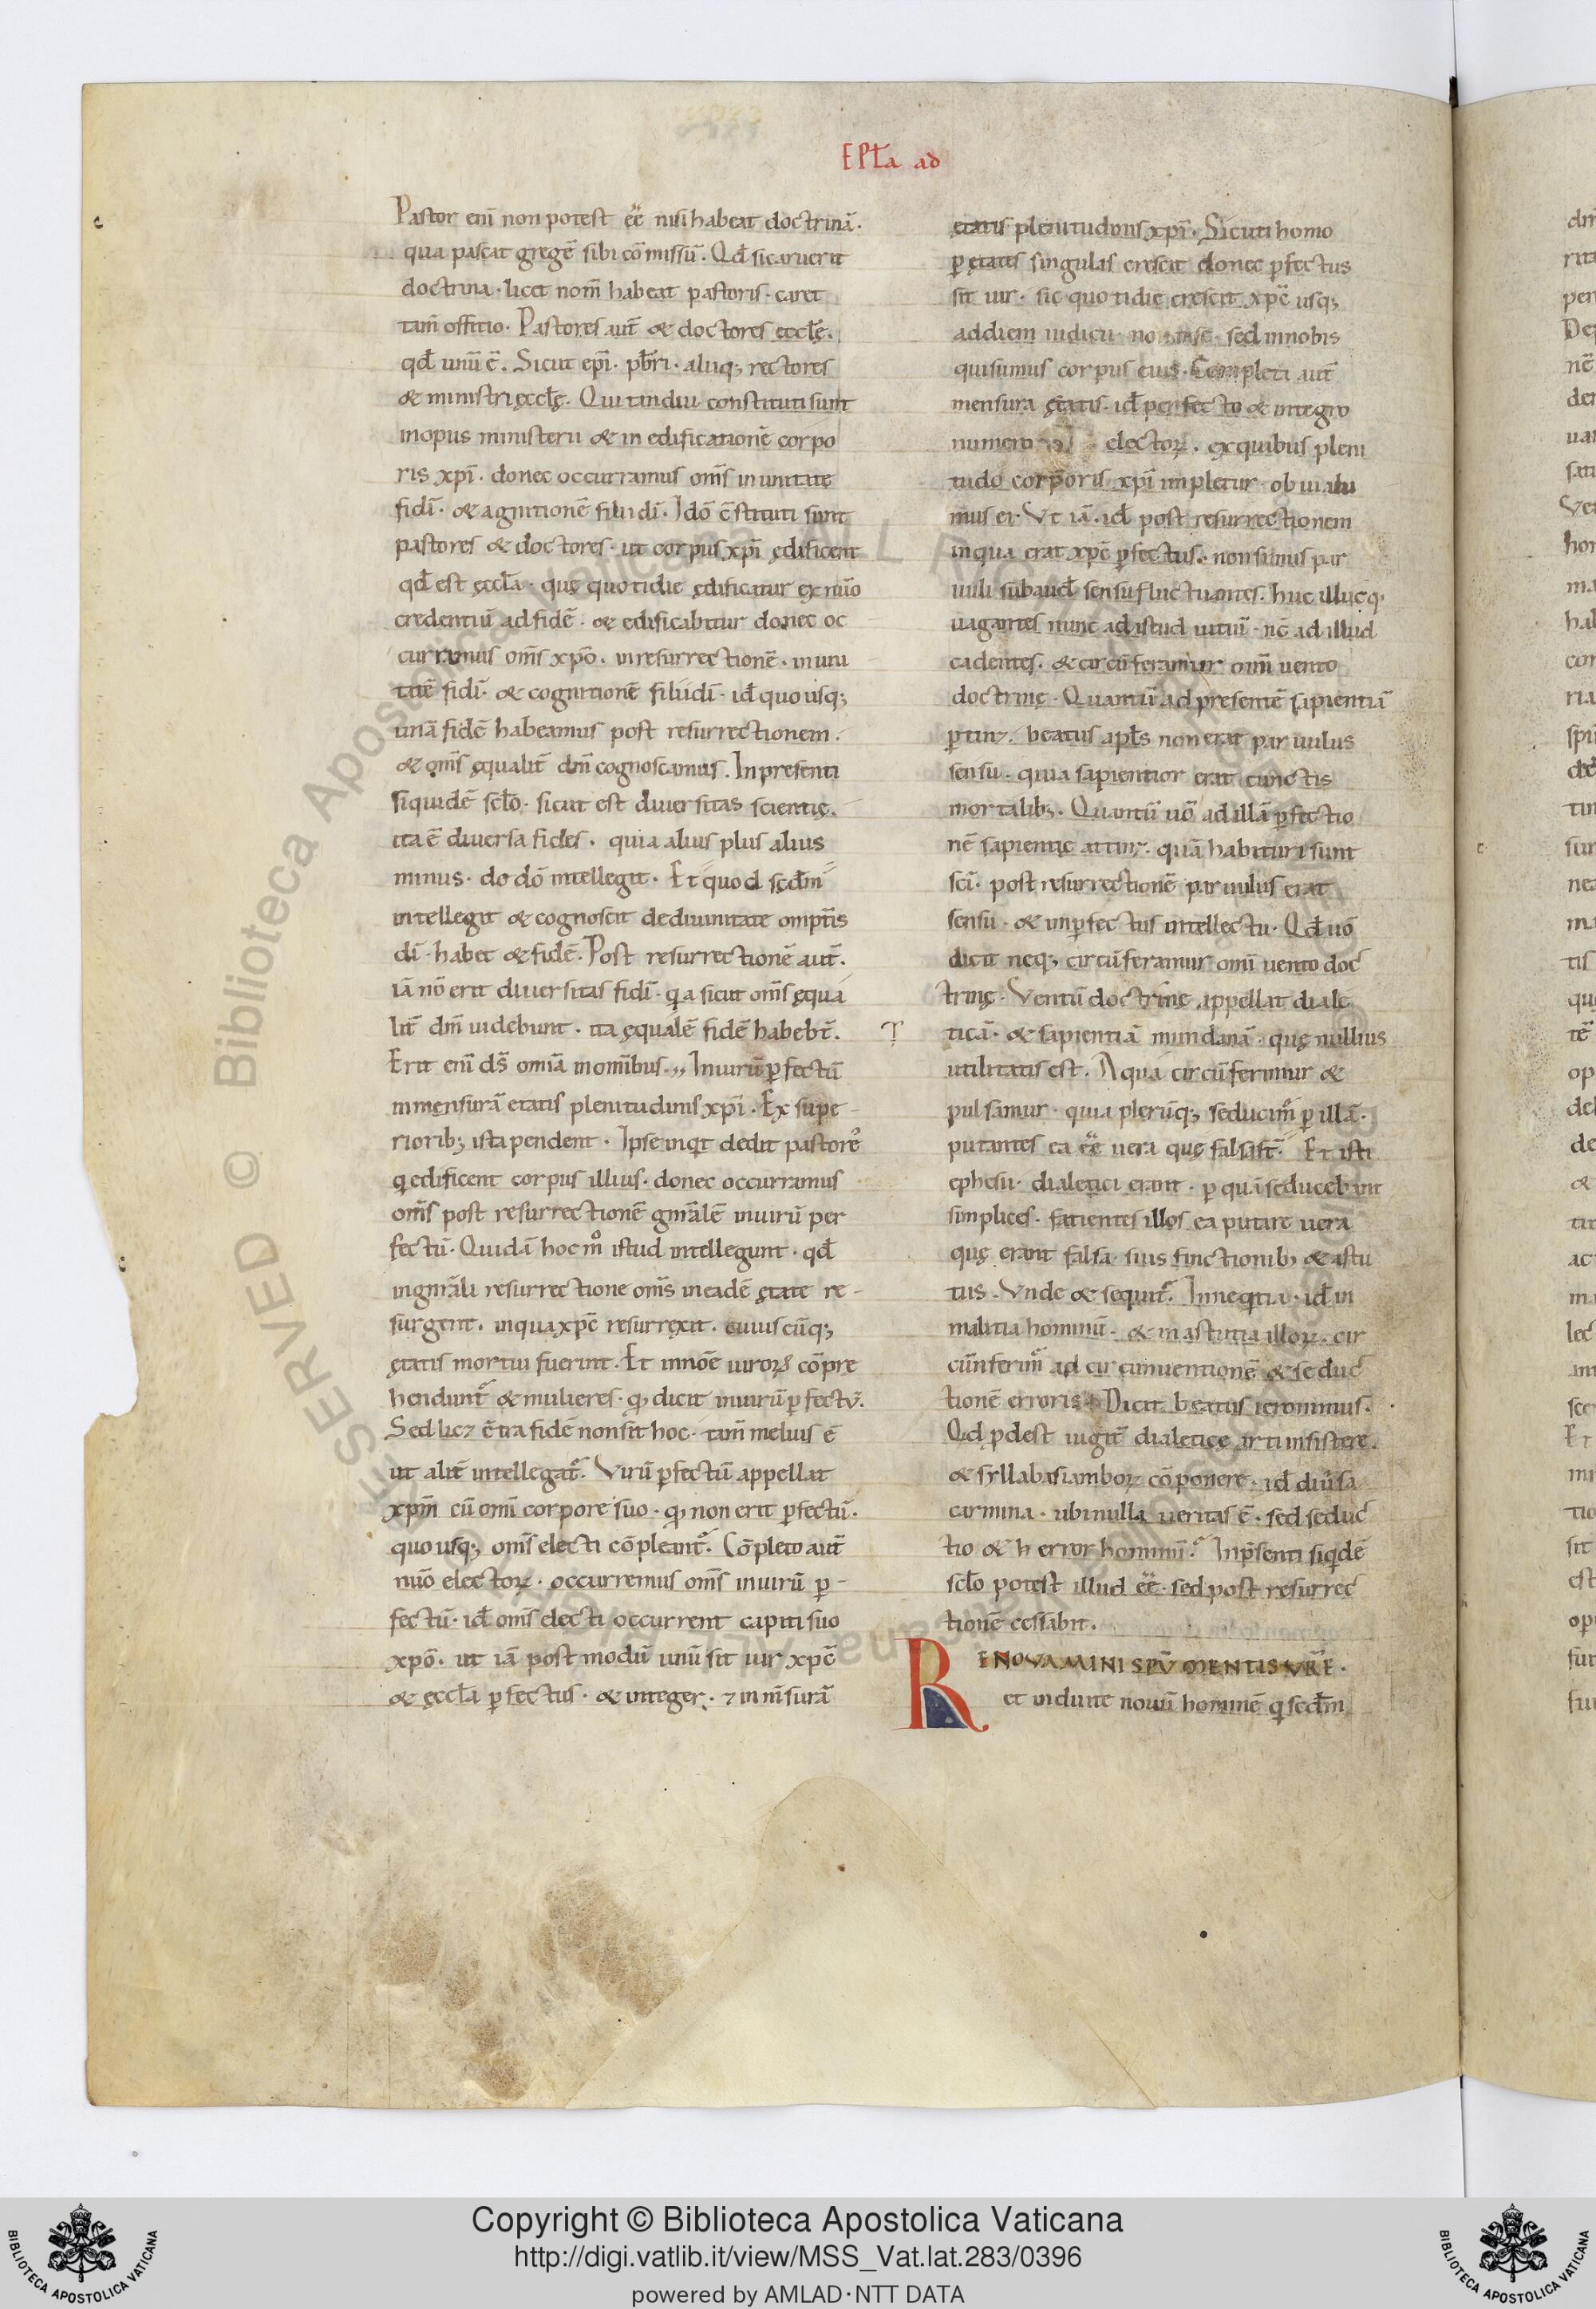 EPL̄a ad
Pastor eni̅ non potest ee̅ nisi habeat doctrinā.
qua pascat gregē sibi cō missū. Qđ si caruerit
doctrina. licet nom̄ habeat pastoris. caret
tam̄ offitio. Pastores aut̄ & doctores eccłę.
qđ unū ē. Sicut ep̄i. pb̄ri. aliiq; rectores
& ministri ęccłę. Qui tandiu constituti sunt
in opus ministerii & in edificationē corpo
ris xp̄i. donec occurramus om̄s in unitatę
fidī. & agnitionē filii dī. Idō c̄stituti sunt
pastores & doctores. ut corpus xp̄i ędificent
qđ est ęccła. quę quotidie ędificatur ex nūo
credentiū ad fidē. & edificabitur donec oc
curramus om̄s xp̄o. in resurrectionē. in uni
tatē fidī. & cognitionē filii dī. iđ quo usq;
unā fidē habeamus post resurrectionem.
& om̄s ęqualit̄ dn̄m cognoscamus. In presenti
siquidē scło. sicut est diuersitas scientię.
ita ē diuersa fides. quia alius plus alius
minus. do dō intellegit. Et quod sc̄dm
intellegit & cognoscit de diuinitate omp̄tis
dī. habet & fidē. Post resurrectionē aut̄.
iā nō erit diuersitas fidī. qa sicut om̄s ęqua
lit̄ dm̄ uidebunt. ita ęqualē fidē habebt̄.
Erit eni̅ ds̄ omīa in omibus. In uirū pfectū
in mensurā etatis plenitudinis xp̄i. Ex supe-
riorib; ista pendent. Ipse inqt dedit pastores
q edificent corpus illius. donec occurramus
om̄s post resurrectionē gn̄alē in uirū per
fectū. Quidā hoc mō istud intellegunt. qđ
in gn̄ali resurrectione om̄s in eadē ętate re-
surgent. in qua xp̄c resurrexit. cuius cūq;
ętatis mortui fuerint. Et in nōe uiroꝝ cōpre
hendunt̄ & mulieres. qꝫ dicit in uirū pfectū.
Sed licꝫ c̄tra fidē non sit hoc. tam̄ melius ē
ut alit̄ intellegat̄. Virū pfectū appellat
xp̄m cū omī corpore suo. qꝫ non erit pfectū.
quo usq; om̄s electi cōpleant̄. Cōpleto aut̄
nūo electoꝝ. occurremus om̄s in uirū p-
fectū. iđ om̄s electi occurrent capiti suo
xp̄o. ut iā post modū unū sit uir xp̄c
& ęccła pfectus. & integer. ⁊ in m̄surā
ętatis plenitudinis xp̄i. Sicuti homo
p ętates singulas crescit donec pfectus
sit uir. sic quotidie crescit xp̄c usq;
ad diem iudicii. sed in nobis
qui sumus corpus eius. Completi aut̄
mensura ętatis. iđ perfecto & integro
numero electoꝝ. ex quibus pleni
tudo corporis xp̄i impletur. obuiabi
mus ei. Vt iā. iđ post resurrectionem
in qua erat xp̄c pfectus. non simus par
uuli subauđ sensu fluctuantes. huc illucq;
uagantes nunc ad istud uitiū. nc̄ ad illud
cadentes. & circū feramur omī uento
doctrinę. Quantū ad presentē sapientiā
ptinꝫ. beatus apłs non erat paruulus
sensu. quia sapientior erat cunctis
mortalib;. Quantū uō ad illā pfectio
nē sapientię attinꝫ. quā habituri sunt
scī. post resurrectionē paruulus erat
sensu. & inpfectus intellectu. Qđ uō
dicit neq; circū feramur omī uento doc
trinę. Ventū doctrinę appellat diale
ticā. & sapientiā mundanā. quę nullius
utilitatis est. A qua circū ferimur &
pulsamur. quia plerūq; seducim̄ p illā.
putantes ea ee̅ uera quę falsa st̄. Et isti
ephesii. dialetici erant. p quā seducebant
simplices. fatientes illos ea putare uera
quę erant falsa. suis finctionib; & astu
tiis. Vnde & sequit̄. In neqtia. iđ in
malitia hominū. & in astutia illoꝝ. cir
cūnferim̄ ad circumuentionē & seduc
tionē erroris. Dicit beatus ieronimus.
Qđ pdest iugit̄ dialeticę arti insistere.
& syllabas iamboꝝ cōponere. iđ diūsa
carmina. ubi nulla ueritas ē. sed seduc
tio & h error hominū. In p̄senti siqdē
scło potest illud ee̅. sed post resurrec
tionē cessabit.
RENOVAMINI SPŪ MENTIS VR̄E.
et induite nouū hominē q sc̄dm